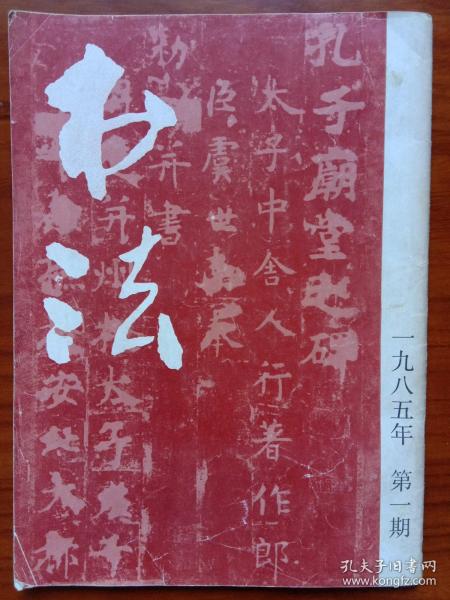 书法
孔子廟堂之碑
太子中舍人行著作郎
臣虞世南奉
勅撰并書
一九八五年 第一期
孔夫子旧书网
www.kongfz.com